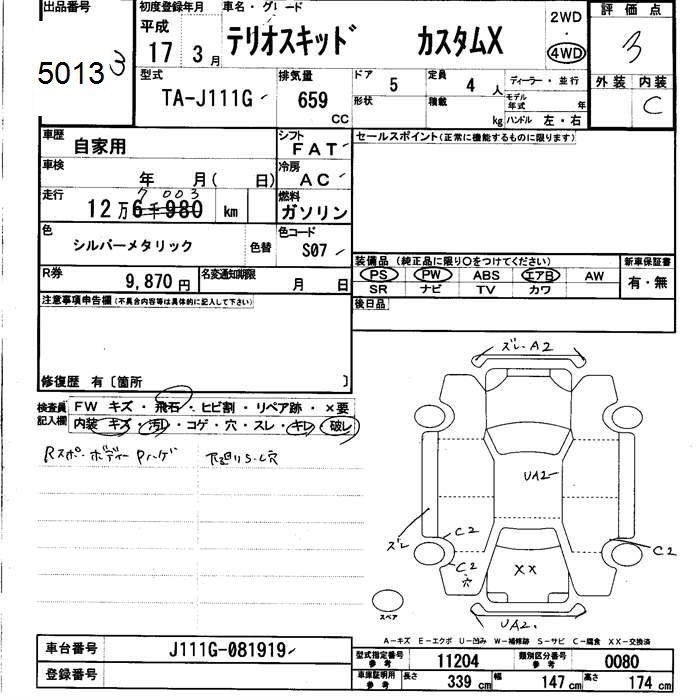 出品番号
50133
初度登録年月
平成
17 3月
車名・グレード
テリオスキッド カスタムX
2WD
・
4WD
評価点
3
型式
TA-J111G
排気量
659
CC
ドア
5
定員
4人
ディーラー・並行
形状
積載
kg
モデル年式 年
ハンドル 左・右
外装 内装
C
車歴
自家用
シフト
FAT
セールスポイント(正常に機能するものに限ります)
車検
年 月( 日)
冷房
AC
走行
7 003
12万6千980 km
燃料
ガソリン
色
シルバーメタリック
色替
色コード
S07
装備品(純正品に限り○をつけてください)
新車保証書
PS PW ABS エアB AW
SR ナビ TV カワ
有・無
R券
9,870円
名変通知期限
月 日
後日品
注意事項申告欄(不具合内容等は具体的に記入して下さい)
修復歴 有〔箇所 〕
検査員記入欄
FW キズ・飛石・ヒビ割・リペア跡・×要
内装 キズ・汚れ・コゲ・穴・スレ・キレ・破レ
Rスポ・ボディー
下廻りS・C穴
ズレ・A2
UA2
ズレ
C2
C2
C2
穴
XX
スペア
UA2
A-キズ E-エクボ U-凹み W-補修跡 S-サビ C-腐食 XX-交換済
車台番号
J111G-081919
型式指定番号
参考
11204
類別区分番号
参考
0080
登録番号
車庫証明用
参考
長さ
339cm
幅
147cm
高さ
174cm